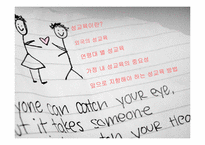 성교육이란?
영국의 성교육
연령대 별 성교육
가정 내 성교육의 중요성
앞으로 지향해야 하는 성교육 방법
yone can catch your eye,
ut it takes someone
catch your Hea